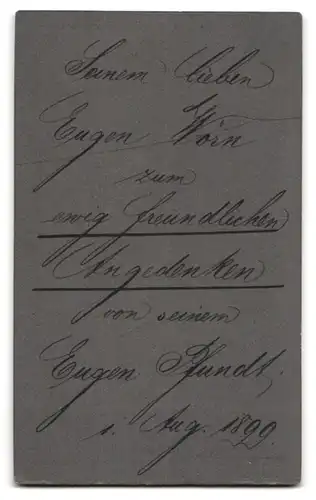 Seinem lieben
Eugen Wörn
zum
ewig freundlichen
Angedenken
von seinem
Eugen Pfundt,
i. Aug. 1899.